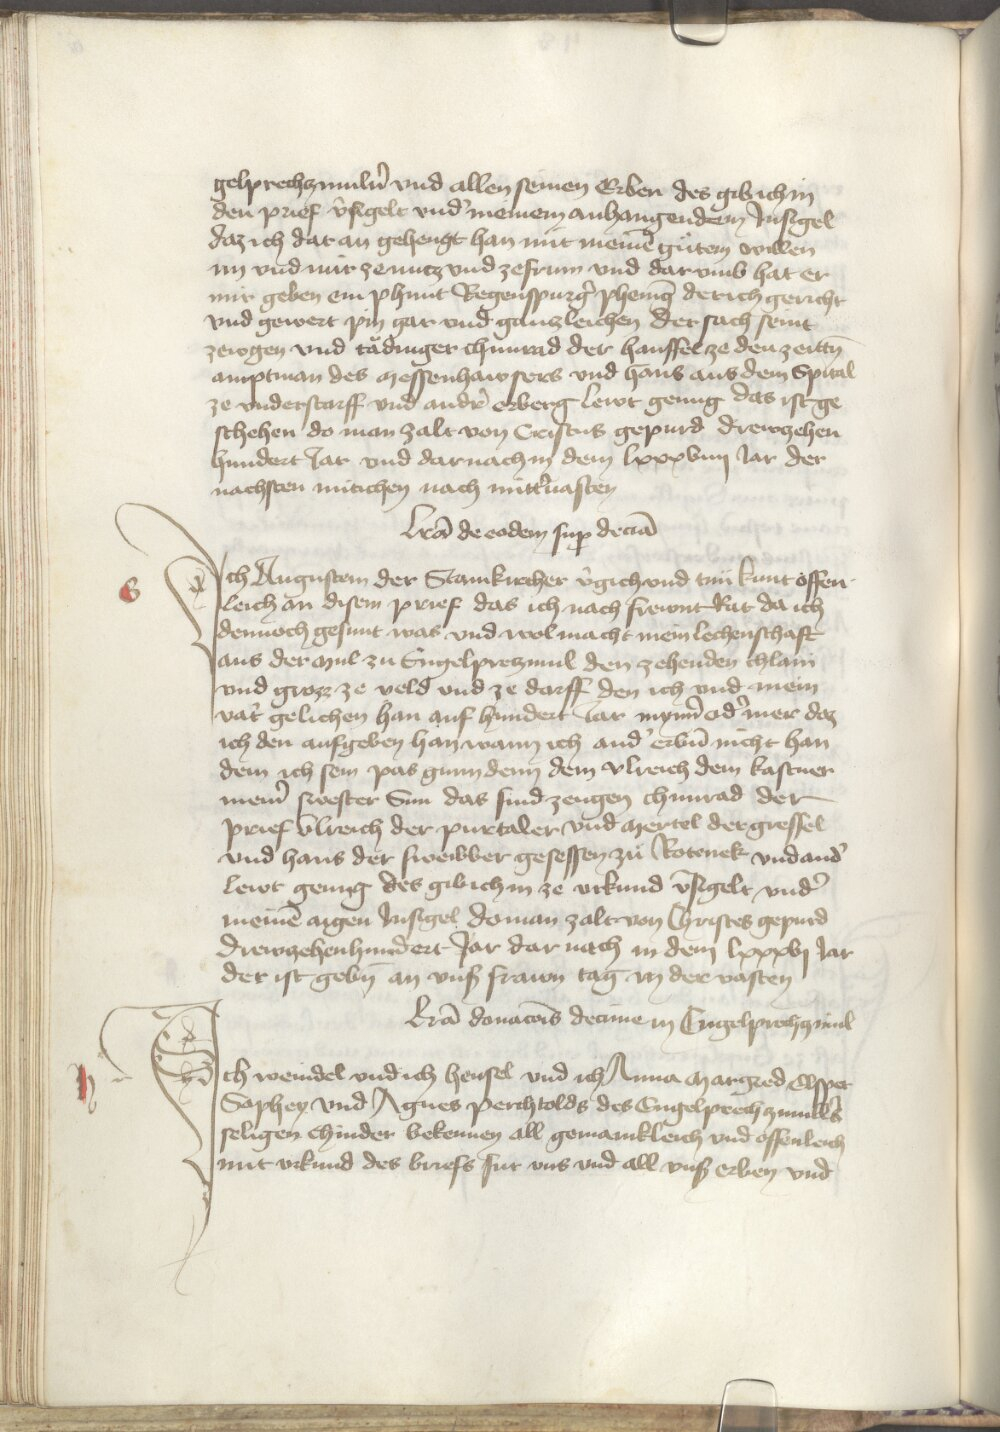 gelprechzmulñ vnd allen seinen Erben des gib ich in
den prief v̉sigelt vnd' meinem anhangendem Insigel
daz ich dar an gehengt han mit meinē gůtem willen
im vnd mir ze nutz vnd ze frum vnd dar vmb hat er
mir geben ein phunt Regenspurg' phenīg der ich gericht
vnd gewert pin gar vnd ganzleichen der sach seint
zewgen vnd tädinger chunrad der hanssel ze den zeitn̄
amptman des Messenhawsers vnd hans aus dem Spital
ze vnderstorff vnd andr' erberg lewt genug das ist ge
schehen do man zalt von Cristus gepurd drewzehen
hundert Jar vnd dar nach in dem lxxxviiij Jar der
nachsten mitichen nach mittuasten
lrā de eodem sup deciā
G
Ich Augustem der Stainkircher v̉gich vnd tun kunt offen
leich an disem prief das ich nach frewnt Rat da ich
dennoch gesunt was vnd wol macht mein lechenschaft
aus der mul zu Engelpretzmul den zehenden chlain
vnd grozz ze veld vnd ze dorff den ich vnd mein
vat' gelichen han auf hundert Jar mynn' od' mer daz
ich den aufgeben han wann ich and' erbñ nicht han
dem ich sein pas gunn denn dem vlreich dem kastner
mein' swester Sun das sind zeugen chunrad der
prief vlreich der purtaler vnd Mertel der gressel
vnd hans der sweibber gesessen zů Rotenek vnd and'
lewt genug des gib ich in ze vrkund v̉sigelt vnd'
meinē aigen Insigel do man zalt von Christes gepurd
drewzehenhundert Jar dar nach in dem lxxxvj Jar
der ist gebn̄ an vnsr' frawn tag in der vasten
lrā donacōis decime in Engelprechzmul
H
Ich weindel vnd ich hensel vnd ich Anna Margred Elspet
Saphey vnd Agnes perchtolds des Engelprechzmull's
seligen chinder bekennen all gemainkleich vnd offenleich
mit vrkund des briefs fur vns vnd all vnsr' erben vnd